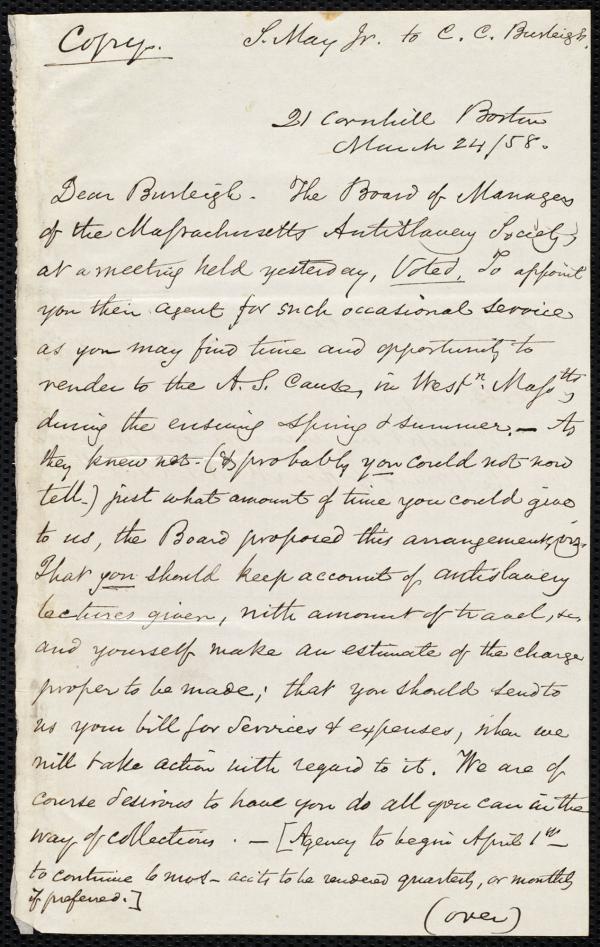 Copy. S. May Jr. to C. C. Burleigh.
21 Cornhill Boston
March 24/58.
Dear Burleigh. The Board of Managers
of the Massachusetts Antislavery Society,
at a meeting held yesterday, Voted, To appoint
you their agent for such occasional service
as you may find time and opportunity to
render to the A. S. Cause, in Westn. Masstts,
during the ensuing spring & summer. — As
they knew not - (& probably you could not now
tell -) just what amount of time you could give
to us, the Board proposed this arrangement, viz.
That you should keep account of antislavery
lectures given, with amount of travel, &c,
and yourself make an estimate of the charge
proper to be made; that you should send to
us your bill for services & expenses, when we
will take action with regard to it. We are of
course desirous to have you do all you can in the
way of collections. — [Agency to begin April 1st —
to continue 6 mos - accts to be rendered quarterly, or monthly
if preferred.]
(over)